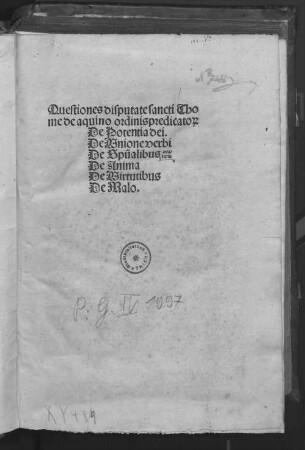 Questiones disputate sancti Tho
me de aquino ordinis predicatoꝝ
De Potentia dei.
De Unione verbi
De Spūalibus
De Anima
De Virtutibus
De Malo.
P. G. IV 1997